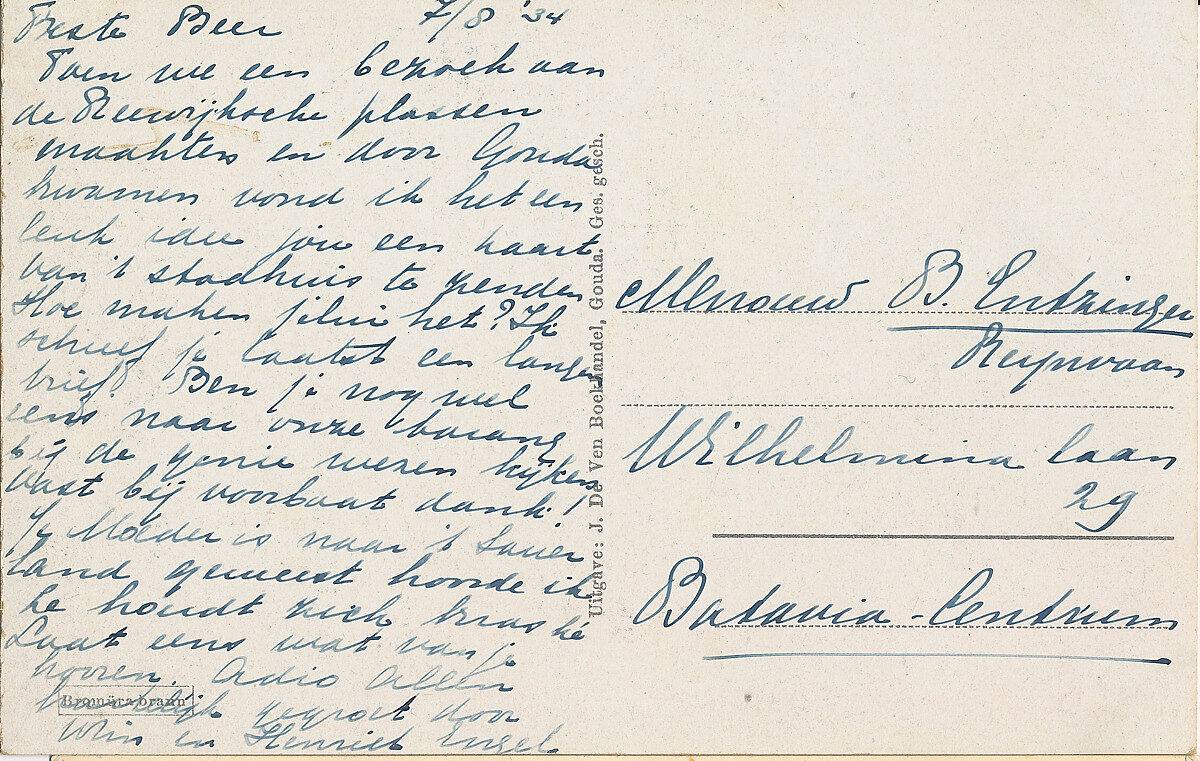 Beste Beer 7/8 '34
Toen we een bezoek aan
de Reeuwijksche plassen
maakten en door Gouda
kwamen vond ik het een
leuk idee jou een kaart
van 't stadhuis te zenden
Hoe maken jelui het? Ik
schreef je laatst een langen
brief. Ben je nog wel
eens naar onze barang
bij de genie wezen kijken,
vast bij voorbaat dank!
Je Moeder is naar 't Sauer
land geweest hoorde ik
ze houdt zich kras hè
Laat eens wat van je
hooren. Adio Allen
hartelijk gegroet door
Wim en Henriet Engel
Bromüra braun
Uitgave: J. De Ven Boekhandel, Gouda. Ges. gesch.
Mevrouw B. Entzinger
Reynvaan
Wilhelmina laan
29
Batavia-Centrum